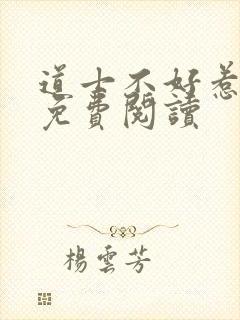 道士不好惹
免費閱讀
楊雲芳